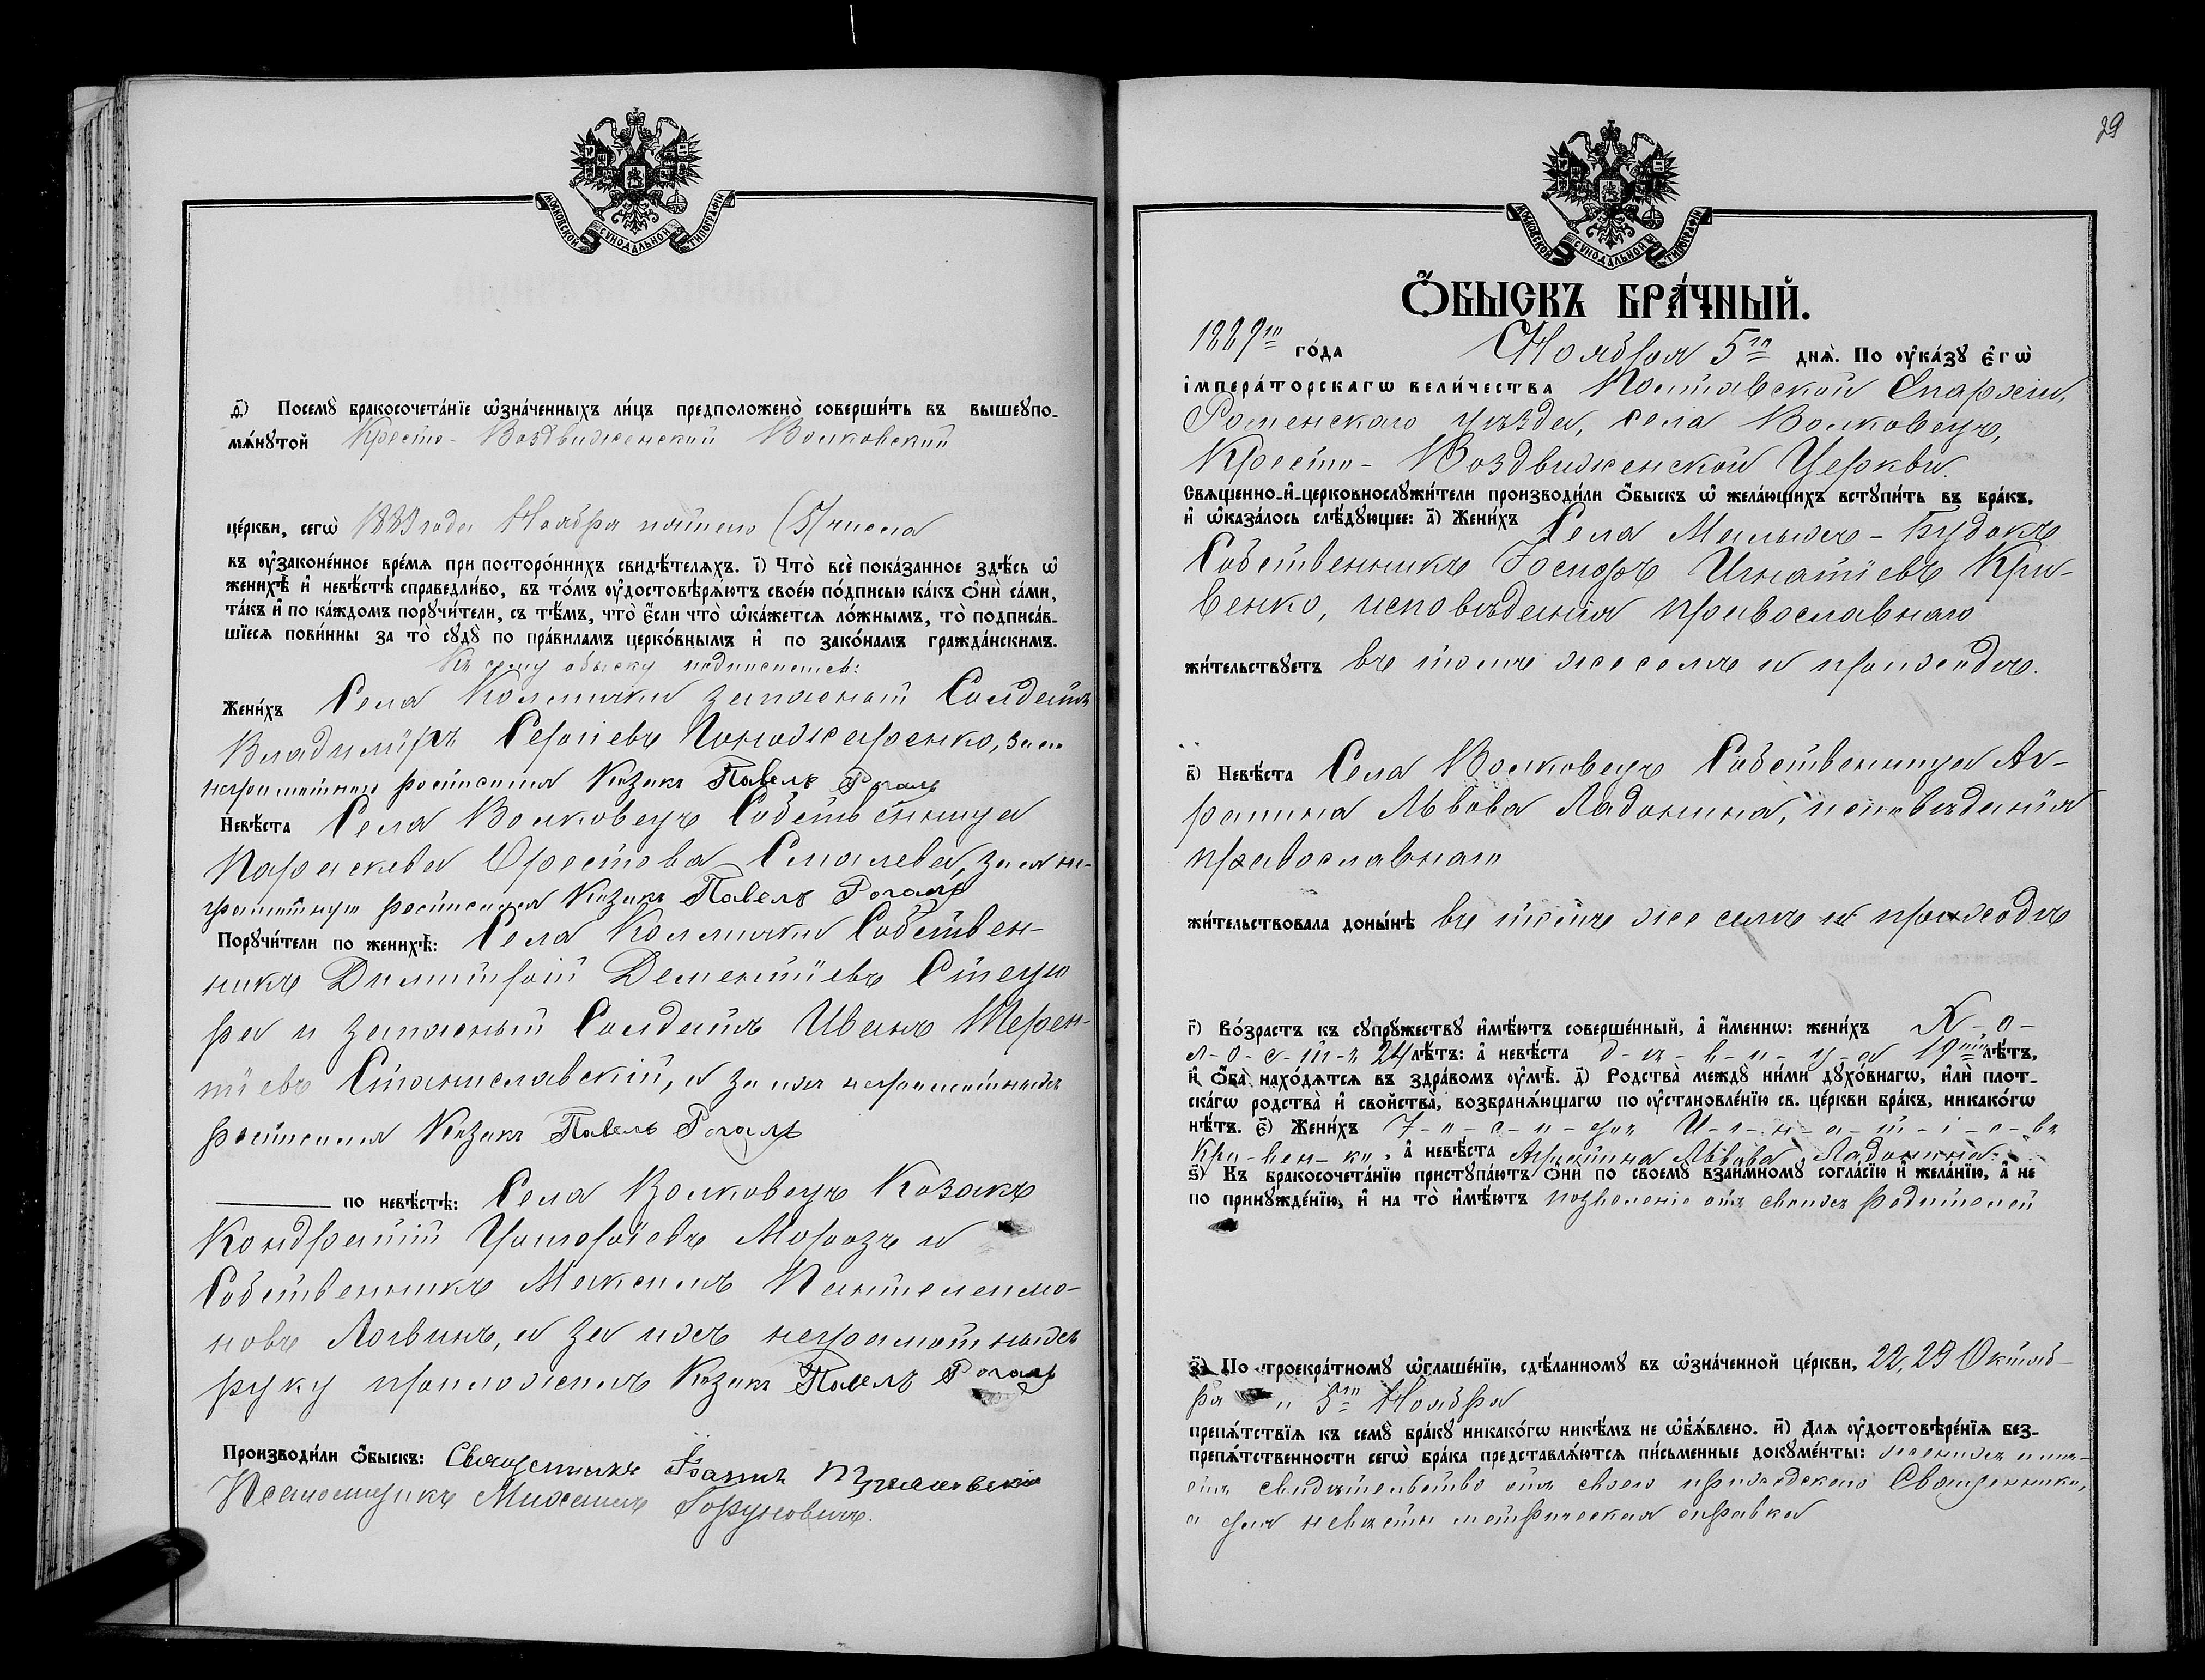 МОСКОВСКОЙ СѴНОДАЛЬНОЙ ТИПОГРАФІИ
ѳ҃) Посемꙋ̀ бракосочета́нїе ѡ҆зна́ченныхъ ли́цъ предположено̀ соверши́ть въ вышеꙋпо-
мѧ́нꙋтой Кресто-Воздвиженский Волковский
це́ркви, сегѡ̀ 1889 года Ноября пятого (5) числа
въ ᲂу҆законе́нное вре́мѧ при посторо́ннихъ свидѣ́телѧхъ. і҃) Что̀ всѐ пока́занное здѣ́сь ѡ҆
женихѣ̀ и҆ невѣ́стѣ справедли́во, въ то́мъ ᲂу҆достовѣрѧ́ютъ свое́ю по́дписью ка́къ ѻ҆нѝ са́ми,
та́къ и҆ по ка́ждомъ порꙋчи́тели, съ тѣ́мъ, что̀ є҆́сли что̀ ѡ҆ка́жетсѧ ло́жнымъ, то̀ подписа́в-
шїесѧ пови́нны за то̀ сꙋдꙋ̀ по пра́виламъ церко́внымъ и҆ по зако́намъ гражда́нскимъ.
Къ сему обыску подписались:
Жени́хъ Села Коммички запасный Солдатъ
Владимiръ Сергiевъ Поножаренко, за его
неграмотного росписался Козакъ Павелъ Рогаль
Невѣ́ста Села Волковецъ Собственница
Параскева Орестова Смалева, за ея не-
грамотную росписался Козакъ Павелъ Рогаль
Порꙋчи́тели по женихѣ̀: Села Коммички Собствен-
никъ Димитрiй Дементiевъ Стецю
ра и запасный Солдатъ Иванъ Терен-
тiевъ Станиславскiй, а за ихъ неграмотныхъ
росписался Козакъ Павелъ Рогаль
по невѣ́стѣ: Села Волковецъ Козакъ
Кондратiй Григорiевъ Морозъ и
Собственникъ Максимъ Пантелеимо-
новъ Логвинъ, а за ихъ неграмотныхъ
руку приложилъ Козакъ Павелъ Рогаль
Производи́ли ѻ҆́быскъ: Священникъ
Псаломщикъ Михаилъ Горуновичъ.
29
МОСКОВСКОЙ СѴНОДАЛЬНОЙ ТИПОГРАФІИ
Ѻ҆́БЫСКЪ БРА́ЧНЫЙ.
1889го го́да Ноября 5го днѧ̀. По ᲂу҆ка́зꙋ є҆гѡ̀
і҆мпера́торскагѡ вели́чества Полтавской Епархiи,
Роменского уѣзда, села Волковецъ,
Кресто-Воздвиженской Церкви
Свѧщенно-и҆-церковнослꙋжи́тели производи́ли ѻ҆́быскъ ѡ҆ жела́ющихъ встꙋпи́ть въ бра́къ,
и҆ ѡ҆каза́лось слѣ́дꙋющее: а҃) Жени́хъ Села Малыхъ-Будокъ
Собственникъ Iосифъ Игнатiевъ Кри-
венко, исповѣданiя православнаго
жи́тельствꙋетъ въ томъ же селѣ и приходѣ.
в҃) Невѣ́ста Села Волковецъ Собственница Аг-
рипина Львова Ладонина, исповѣданiя
православнаго
жи́тельствовала доны́нѣ въ томъ же селѣ и приходѣ
г҃) Во́зрастъ къ сꙋпрꙋ́жествꙋ и҆мѣ́ютъ соверше́нный, а҆ и҆́меннѡ: жени́хъ Х-о-
л-о-с-т-ъ 24 лѣ́тъ: а҆ невѣ́ста д-ѣ-в-и-ц-а 19ти лѣ́тъ,
и҆ ѻ҆́ба нахо́дѧтсѧ въ здра́вомъ ᲂу҆мѣ̀. д҃) Родства̀ междꙋ̀ ни́ми дꙋхо́внагѡ, и҆лѝ плот-
ска́гѡ родства̀ и҆ свойства̀, возбранѧ́ющагѡ по ᲂу҆становле́нїю св. це́ркви бра́къ, никако́гѡ
нѣ́тъ. є҃) Жени́хъ I-о-с-и-фъ И-г-н-а-т-i-е-въ
Кри-вен-ко, а҆ невѣ́ста Агрипина Львова Ладонина.
ѕ҃) Къ бракосочета́нїю пристꙋпа́ютъ ѻ҆нѝ по своемꙋ̀ взаи́мномꙋ согла́сїю и҆ жела́нїю, а҆ не
по принꙋжде́нїю, и҆ на то̀ и҆мѣ́ютъ позволенiе отъ своихъ родителей
з҃) По троекра́тномꙋ ѡ҆глаше́нїю, сдѣ́ланномꙋ въ ѡ҆зна́ченной це́ркви, 22, 29 Октяб-
ря и 5го Ноября
препѧ́тствїѧ къ семꙋ̀ бра́кꙋ никако́гѡ никѣ́мъ не ѡ҆б̾ѧ́влено. и҃) Длѧ ᲂу҆достовѣре́нїѧ без-
препѧ́тственности сегѡ̀ бра́ка представлѧ́ютсѧ пи́сьменные докꙋме́нты: женихъ имѣ-
етъ свидѣтельство отъ своего приходского Священника,
а для невѣсты метрическая справка